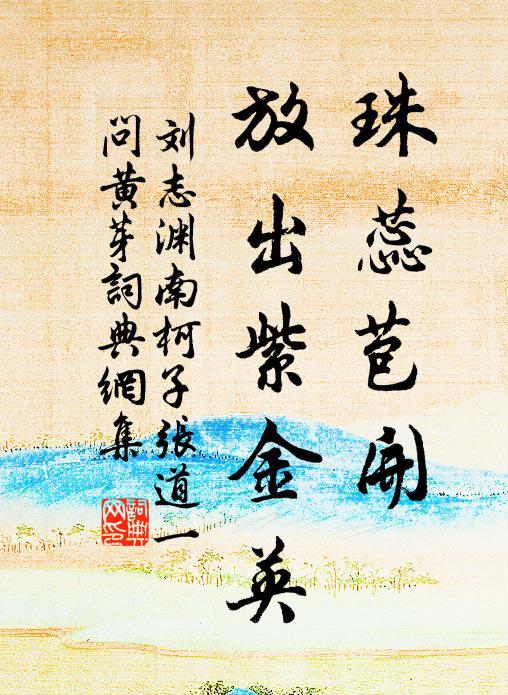 珠蕊苞開
放出紫金英
刘志渊南柯子張道一
問黃芽詞典網集
詞典